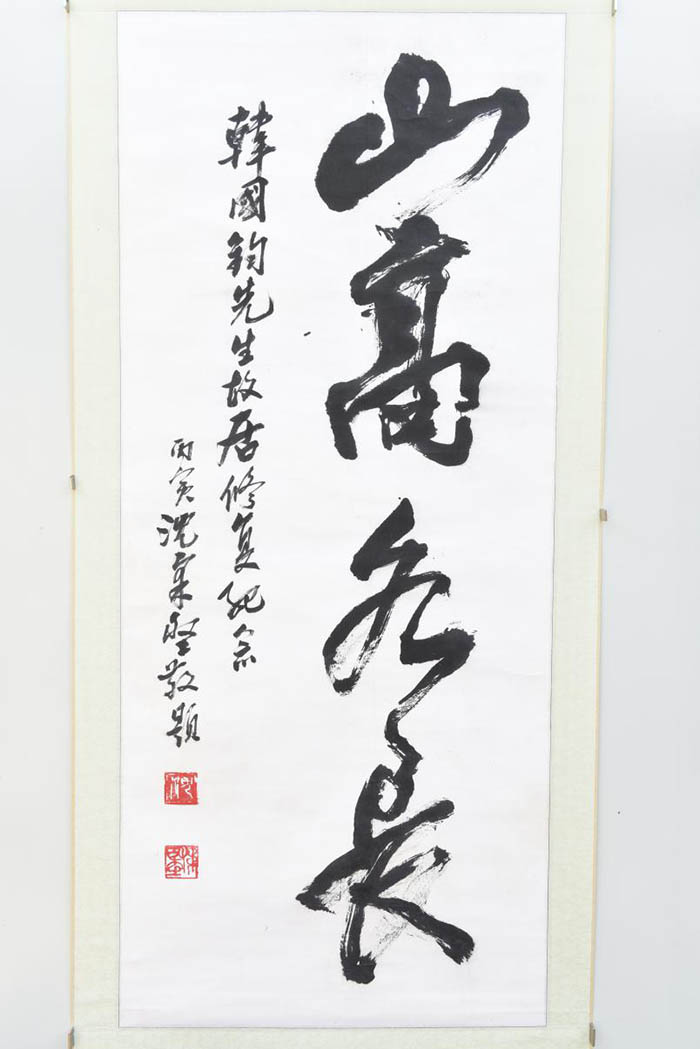 山高水長
韓國鈞先生故居修复紀念
丙寅沈柔堅敬題